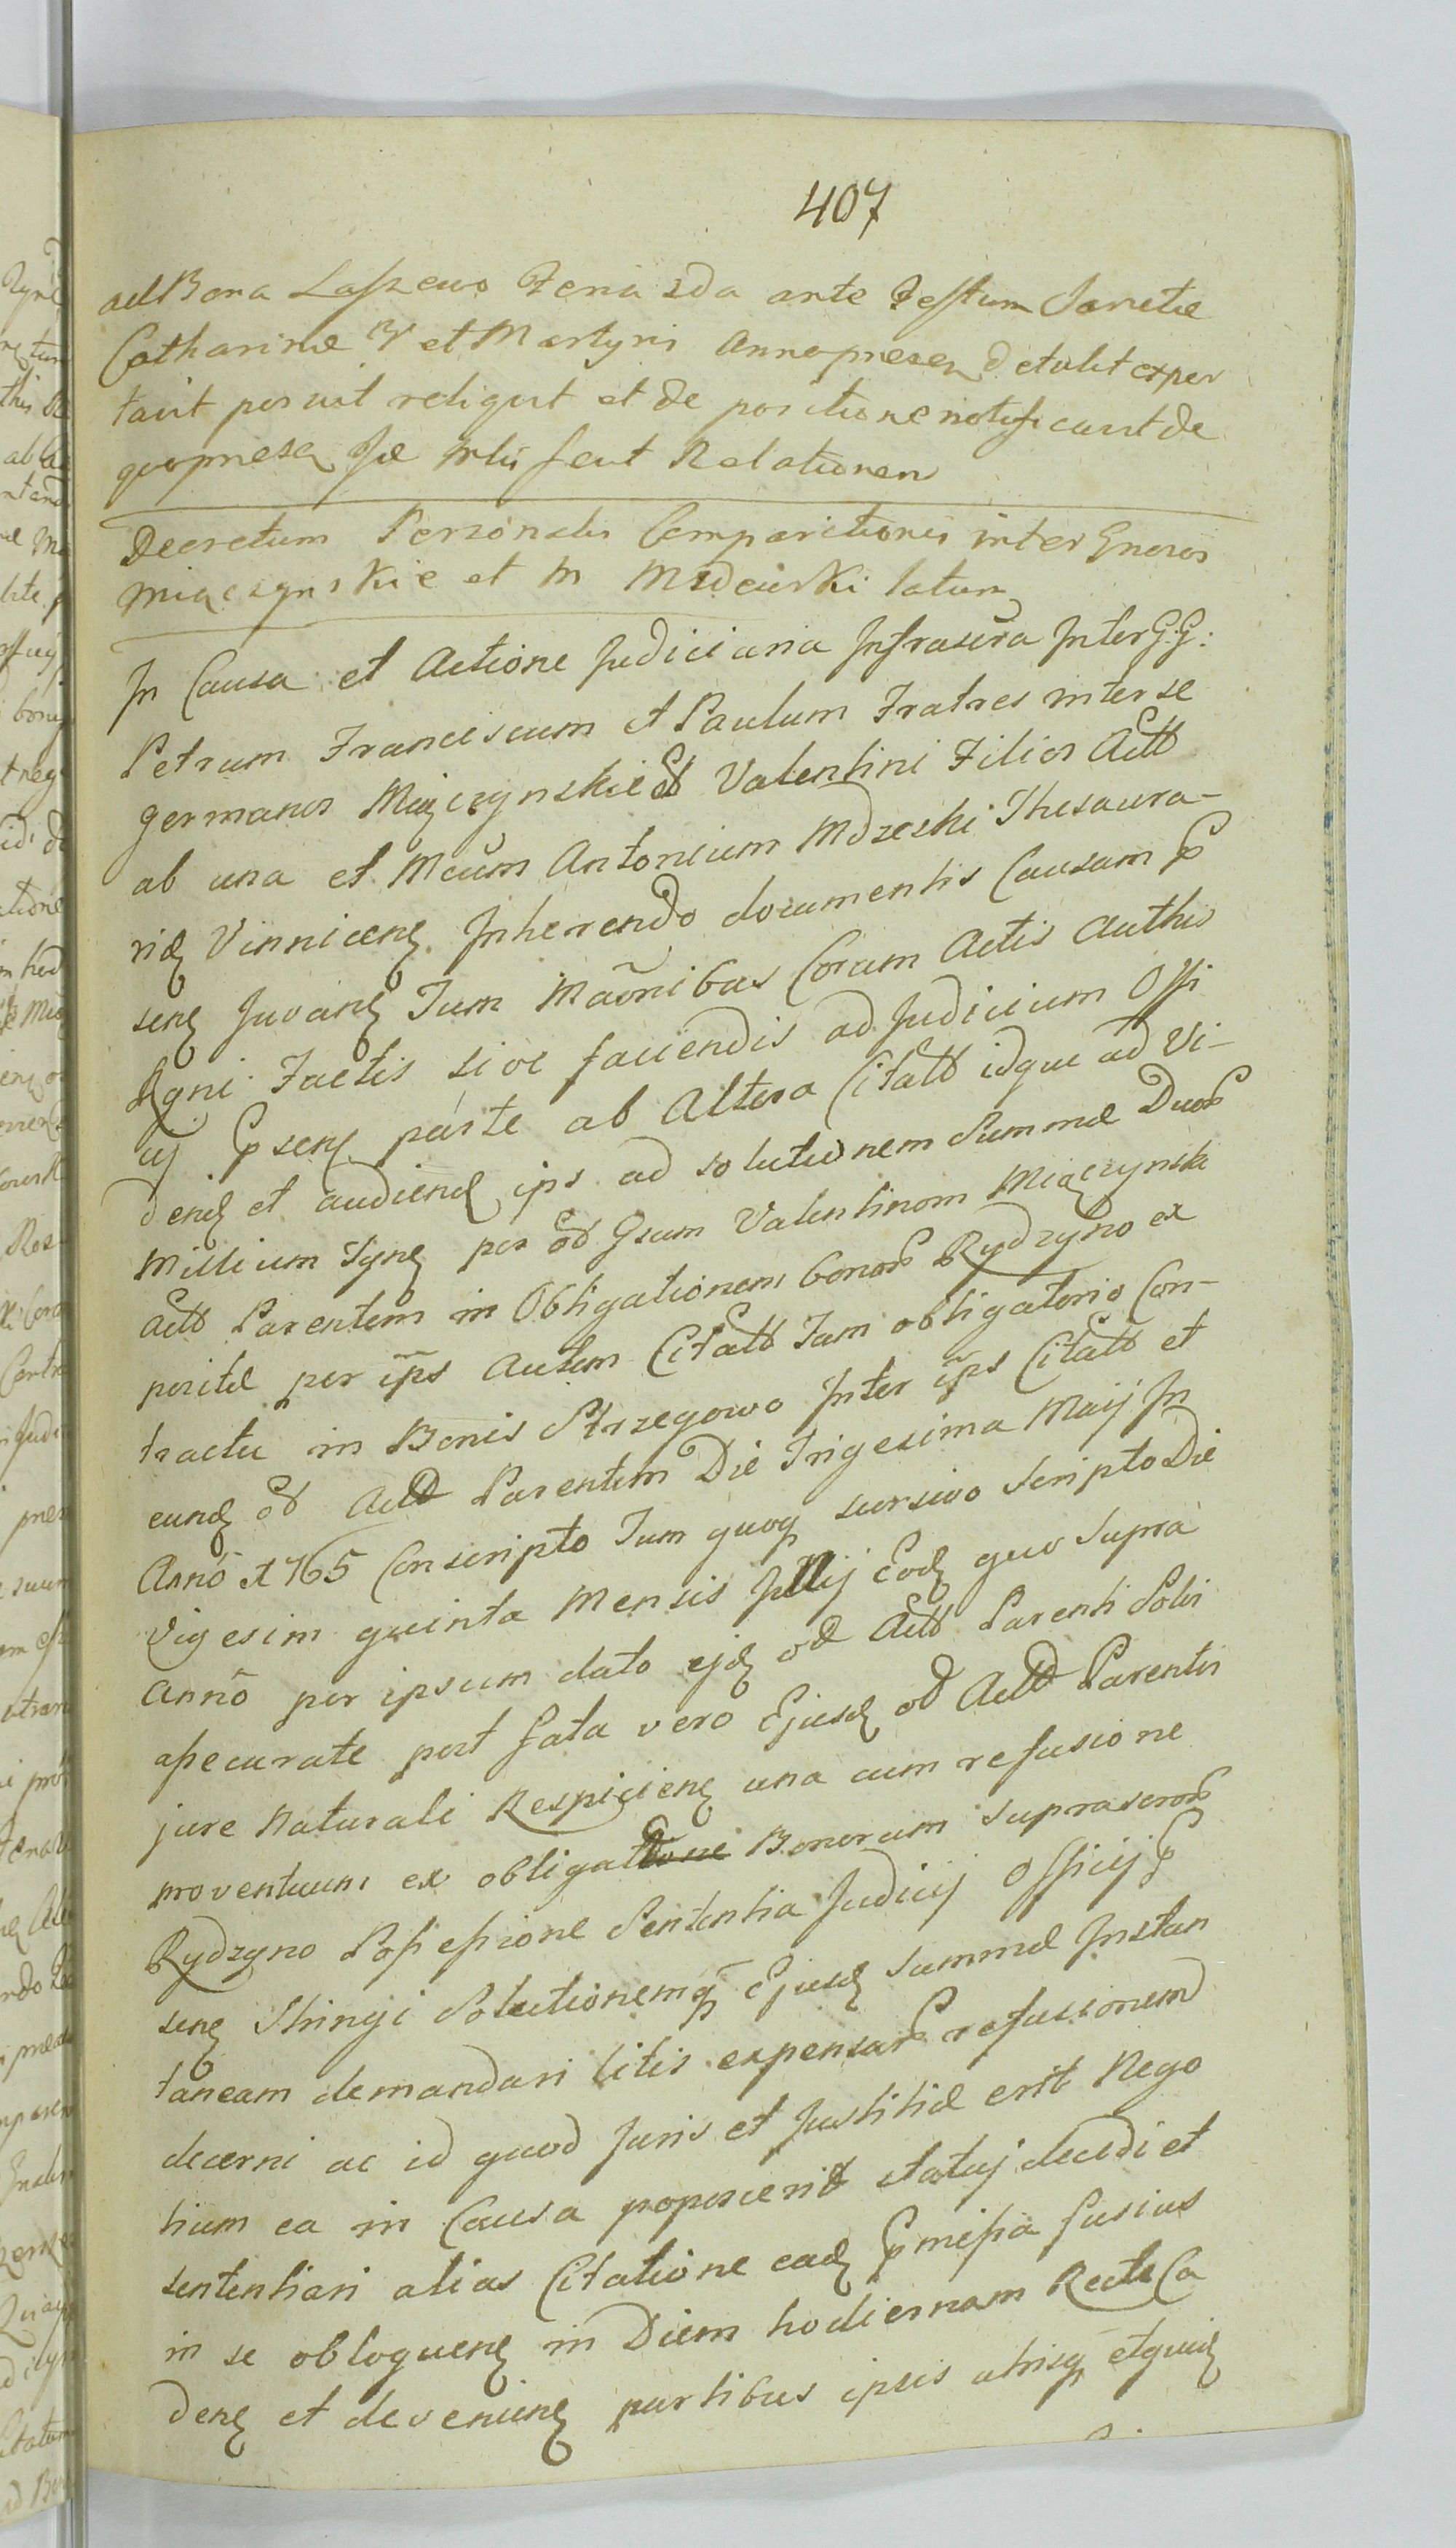 407
ad Bona Laszewo Feria 2da ante Festum Sanctae
Catharinae V et Martyris Anno praesen detulit expor
tavit posuit reliquit et de positione notificavit de
quo praesen suae fecit Relationem
Decretum Personalis Comparitionis inter Gnosos
Miączynskie et M Mdzewski latum
In Causa et Actione Judiciaria Infrascra Inter G.G:
Petrum Franciscum et Paulum Fratres inter se
germanos Miączynskie od Valentini Filios Actt
ab una et Mcum Antonium Mdzeski Thesaura-
rid Vinnicen Inherendo documentis Causam P
sen Juvan Tum Maonibus Coram Actis Authis
Rgni Factis sive faciendis ad Judicium Offi
cij P sen parte ab Altera Citatt idque ad Vi-
dend et audiend ips ad solutionem Summae Duor
Millium Tyn per od Gsum Valentinum Miączynski
Actt Parentem in Obligationem bonor Rydzyno ex
positae per ips autem Citatt Tam obligatorio Con-
tractu in Bonis Strzegowo Inter ips Citatt et
eund od Actt Parentem Die Trigesima Maij In
Anno 1765 Conscripto Tum quoq sursivo Scripto Die
Vigesim quinta Mensis Julij Eod quo Supra
Anno per ipsum dato ejd od Actt Parenti Solvi
assecuratae post fata vero Ejusd od Actt Parentis
jure Naturali Respicien una cum refusione
proventuum ex obligatione Bonorum suprascror
Rydzyno Possessione Sententia Judicij Officij P
sen Stringi Solutionemq Ejusd Summae Instan
taneam demandari litis expensar refusionem
decerni ac id quod Juris et Justitiae erit Nego
tium ea in Causa poposcerit statuj decidi et
sententiari alias Citatione ead P missa fusius
in se obloquen in Diem hodiernam Recte Ca
den et devenien partibus ipsis utrisq et quid